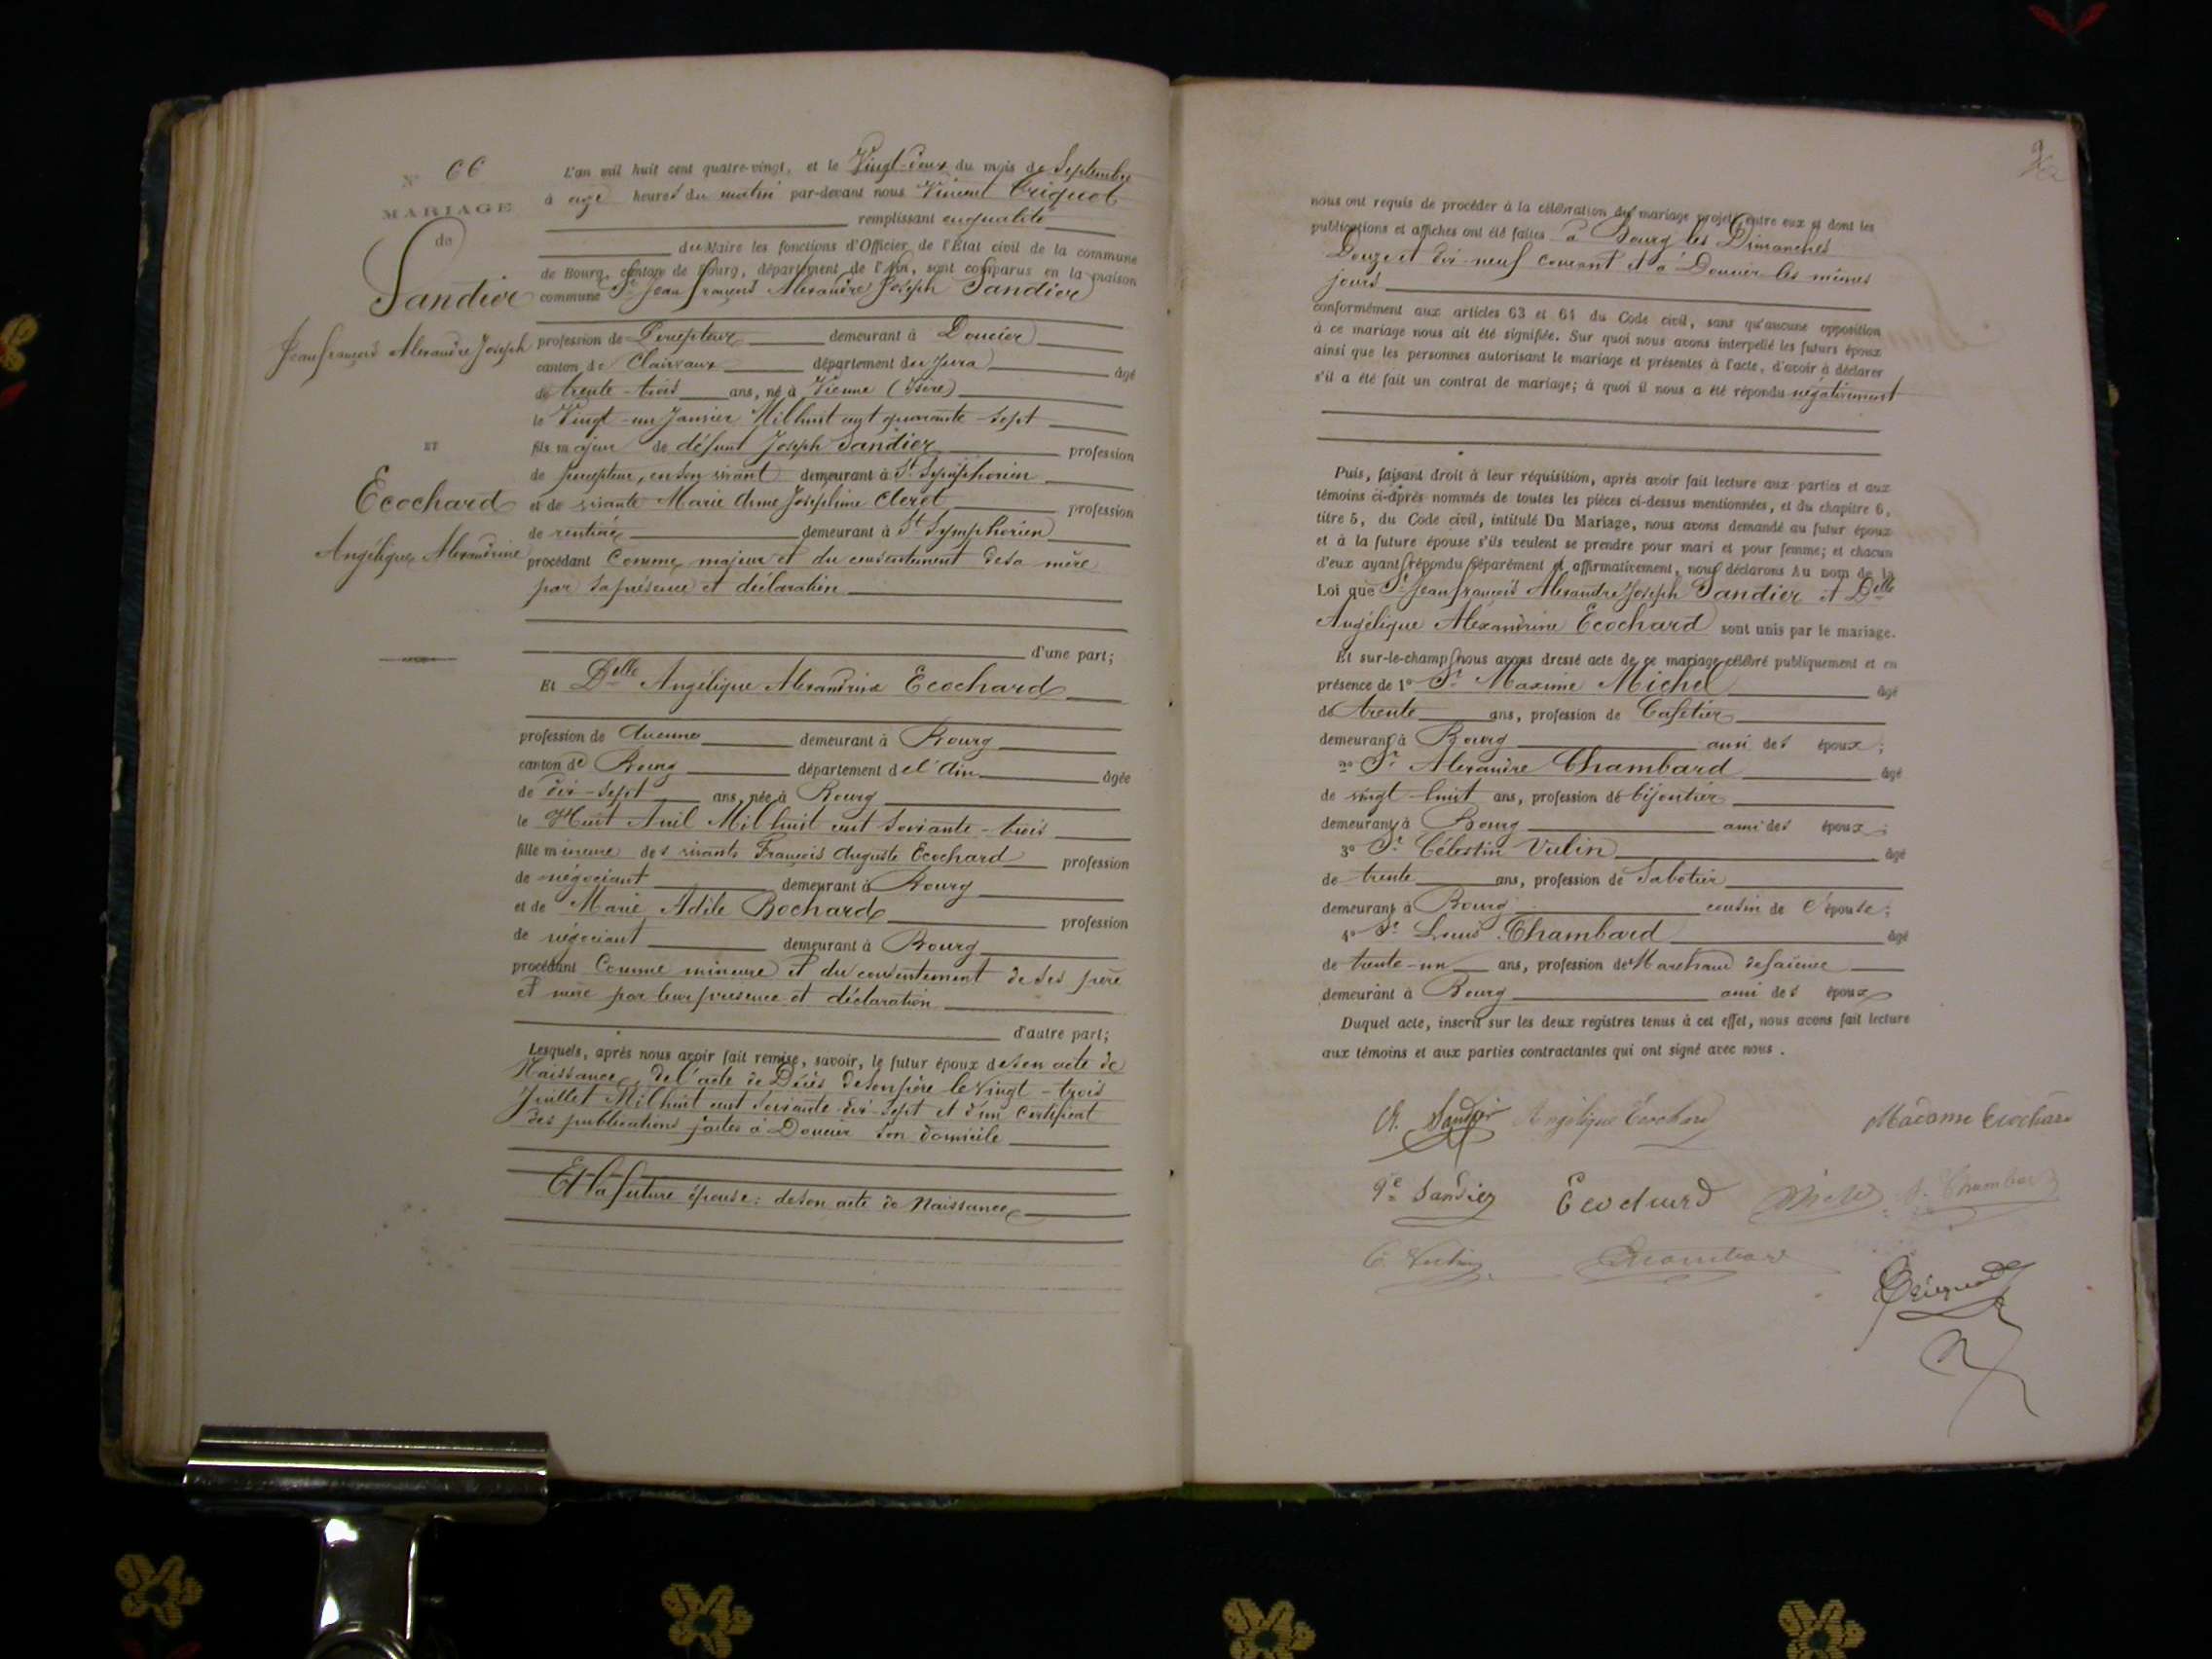 N° 66
MARIAGE
de
Sandier
Jean François Alexandre Joseph
ET
Ecochard
Angélique Alexandrine
L'an mil huit cent quatre-vingt, et le Vingt-deux du mois de Septembre
à onze heures du matin par-devant nous Vincent
remplissant en qualité
du Maire les fonctions d'Officier de l'État civil de la commune
de Bourg, canton de Bourg, département de l'Ain, sont comparus en la maison
commune Sr Jean François Alexandre Joseph Sandier
profession de Percepteur demeurant à Doucier
canton de Clairvaux département du Jura âgé
de trente-trois ans, né à Vienne (Isère)
le Vingt-un Janvier Mil huit cent quarante-sept
fils majeur de défunt Joseph Sandier profession
de percepteur, en son vivant demeurant à St Symphorien
et de vivante Marie Anne Joséphine Cleret profession
de rentière demeurant à St Symphorien
procédant Comme majeur et du consentement de sa mère
par sa présence et déclaration
d'une part;
Et Delle Angélique Alexandrine Ecochard
profession de Aucune demeurant à Bourg
canton de Bourg département de l'Ain âgée
de dix-sept ans, née à Bourg
le Huit Avril Mil huit cent soixante-trois
fille mineure des vivants François Auguste Ecochard profession
de négociant demeurant à Bourg
et de Marie Adèle Bochard profession
de négociant demeurant à Bourg
procédant Comme mineure et du consentement de ses père
et mère par leur présence et déclaration
d'autre part;
Lesquels, après nous avoir fait remise, savoir, le futur époux de son acte de
Naissance, de l'acte de Décès de son père le Vingt-trois
Juillet Mil huit cent soixante-dix-sept et d'un Certificat
des publications faites à Doucier son domicile
Et la future épouse: de son acte de Naissance
nous ont requis de procéder à la célébration du mariage projeté entre eux et dont les
publications et affiches ont été faites à Bourg les Dimanches
Douze et dix-neuf courant et à Doucier les mêmes
jours
conformément aux articles 63 et 64 du Code civil, sans qu'aucune opposition
à ce mariage nous ait été signifiée. Sur quoi nous avons interpellé les futurs époux
ainsi que les personnes autorisant le mariage et présentes à l'acte, d'avoir à déclarer
s'il a été fait un contrat de mariage; à quoi il nous a été répondu négativement
Puis, faisant droit à leur réquisition, après avoir fait lecture aux parties et aux
témoins ci-après nommés de toutes les pièces ci-dessus mentionnées, et du chapitre 6,
titre 5, du Code civil, intitulé Du Mariage, nous avons demandé au futur époux
et à la future épouse s'ils veulent se prendre pour mari et pour femme; et chacun
d'eux ayant répondu séparément et affirmativement, nous déclarons Au nom de la
Loi que Sr Jean François Alexandre Joseph Sandier et Delle
Angélique Alexandrine Ecochard sont unis par le mariage.
Et sur-le-champ nous avons dressé acte de ce mariage célébré publiquement et en
présence de 1° Sr Maxime Michel âgé
de trente ans, profession de Cafetier
demeurant à Bourg ami des époux;
2° Sr Alexandre Chambard âgé
de vingt-huit ans, profession de bijoutier
demeurant à Bourg ami des époux;
3° Sr Célestin Vulin âgé
de trente ans, profession de Sabotier
demeurant à Bourg cousin de l'épouse;
4° Sr Louis Chambard âgé
de trente-un ans, profession de Marchand de faïence
demeurant à Bourg ami des époux
Duquel acte, inscrit sur les deux registres tenus à cet effet, nous avons fait lecture
aux témoins et aux parties contractantes qui ont signé avec nous.
A. Sandier Angélique Ecochard Madame Ecochard
Sandier Ecochard Michel Chambard
C. Vulin Chambard